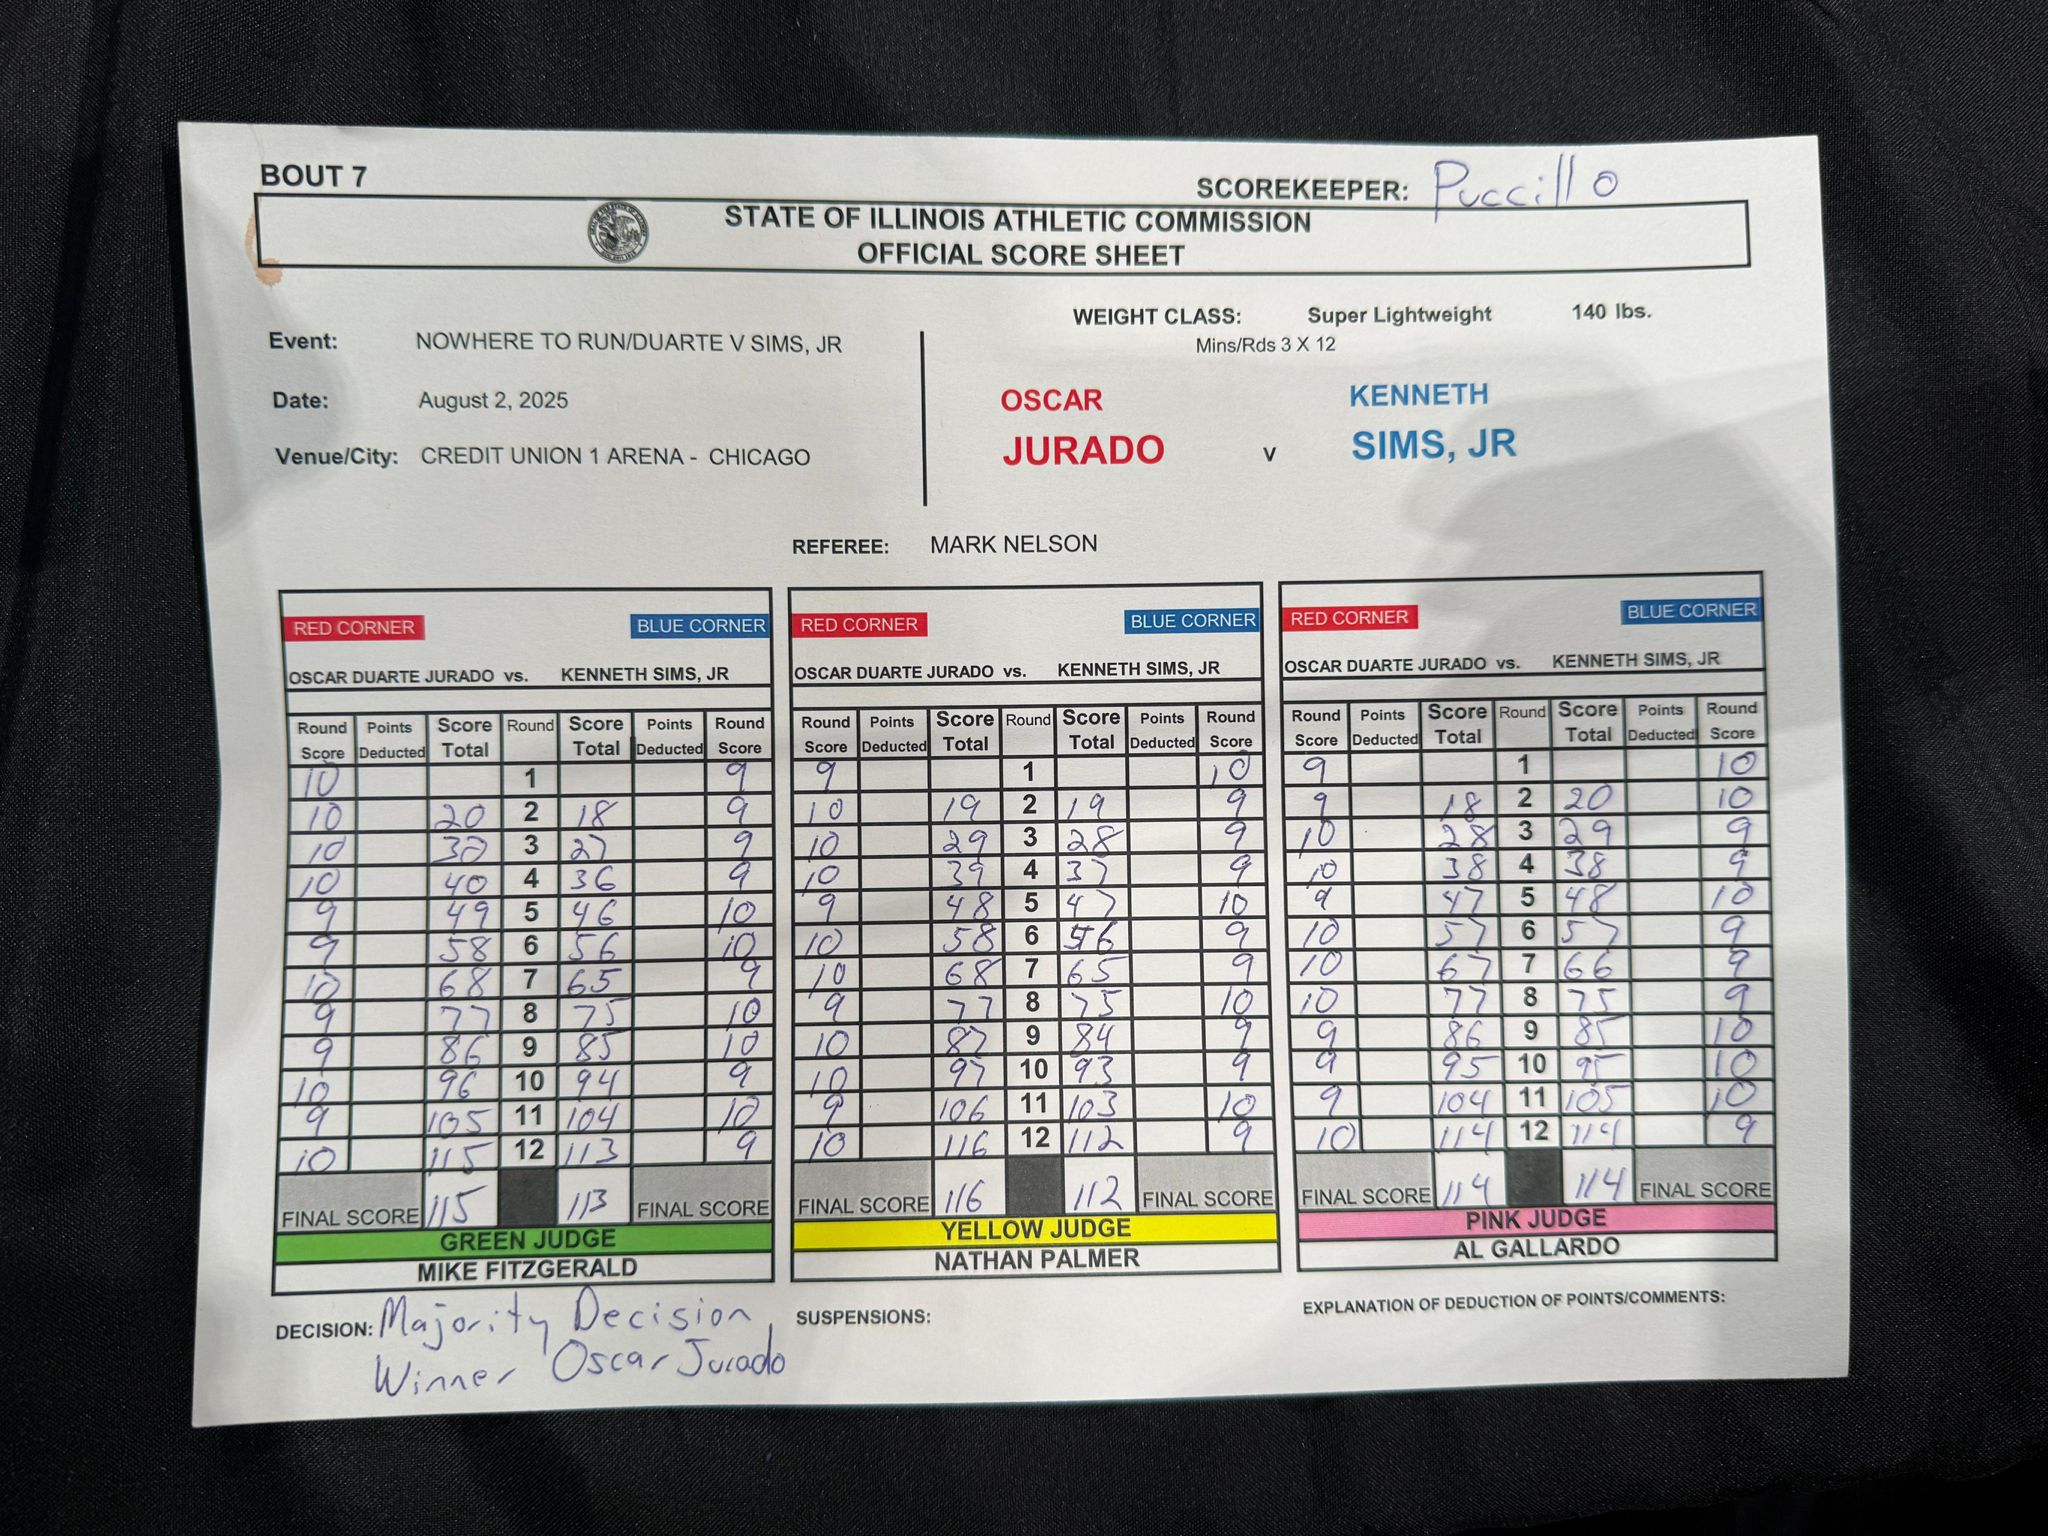 BOUT 7
SCOREKEEPER: Puccillo
STATE OF ILLINOIS ATHLETIC COMMISSION
OFFICIAL SCORE SHEET
WEIGHT CLASS: Super Lightweight 140 lbs.
Mins/Rds 3 X 12
Event: NOWHERE TO RUN/DUARTE V SIMS, JR
Date: August 2, 2025
Venue/City: CREDIT UNION 1 ARENA - CHICAGO
OSCAR KENNETH
JURADO v SIMS, JR
REFEREE: MARK NELSON
RED CORNER BLUE CORNER
OSCAR DUARTE JURADO vs. KENNETH SIMS, JR
Round Score Points Deducted Score Total Round Score Total Points Deducted Round Score
10 1 9
10 20 2 18 9
10 30 3 27 9
10 40 4 36 9
9 49 5 46 10
9 58 6 56 10
10 68 7 65 9
9 77 8 75 10
9 86 9 85 10
10 96 10 94 9
9 105 11 104 10
10 115 12 113 9
FINAL SCORE 115 113 FINAL SCORE
GREEN JUDGE
MIKE FITZGERALD
RED CORNER BLUE CORNER
OSCAR DUARTE JURADO vs. KENNETH SIMS, JR
Round Score Points Deducted Score Total Round Score Total Points Deducted Round Score
9 1 10
10 19 2 19 9
10 29 3 28 9
10 39 4 37 9
9 48 5 47 10
10 58 6 56 9
10 68 7 65 9
9 77 8 75 10
10 87 9 84 9
10 97 10 93 9
9 106 11 103 10
10 116 12 112 9
FINAL SCORE 116 112 FINAL SCORE
YELLOW JUDGE
NATHAN PALMER
RED CORNER BLUE CORNER
OSCAR DUARTE JURADO vs. KENNETH SIMS, JR
Round Score Points Deducted Score Total Round Score Total Points Deducted Round Score
9 1 10
9 18 2 20 10
10 28 3 29 9
10 38 4 38 9
9 47 5 48 10
10 57 6 57 9
10 67 7 66 9
10 77 8 75 9
9 86 9 85 10
9 95 10 95 10
9 104 11 105 10
10 114 12 114 9
FINAL SCORE 114 114 FINAL SCORE
PINK JUDGE
AL GALLARDO
DECISION: Majority Decision,
Winner Oscar Jurado
SUSPENSIONS:
EXPLANATION OF DEDUCTION OF POINTS/COMMENTS: